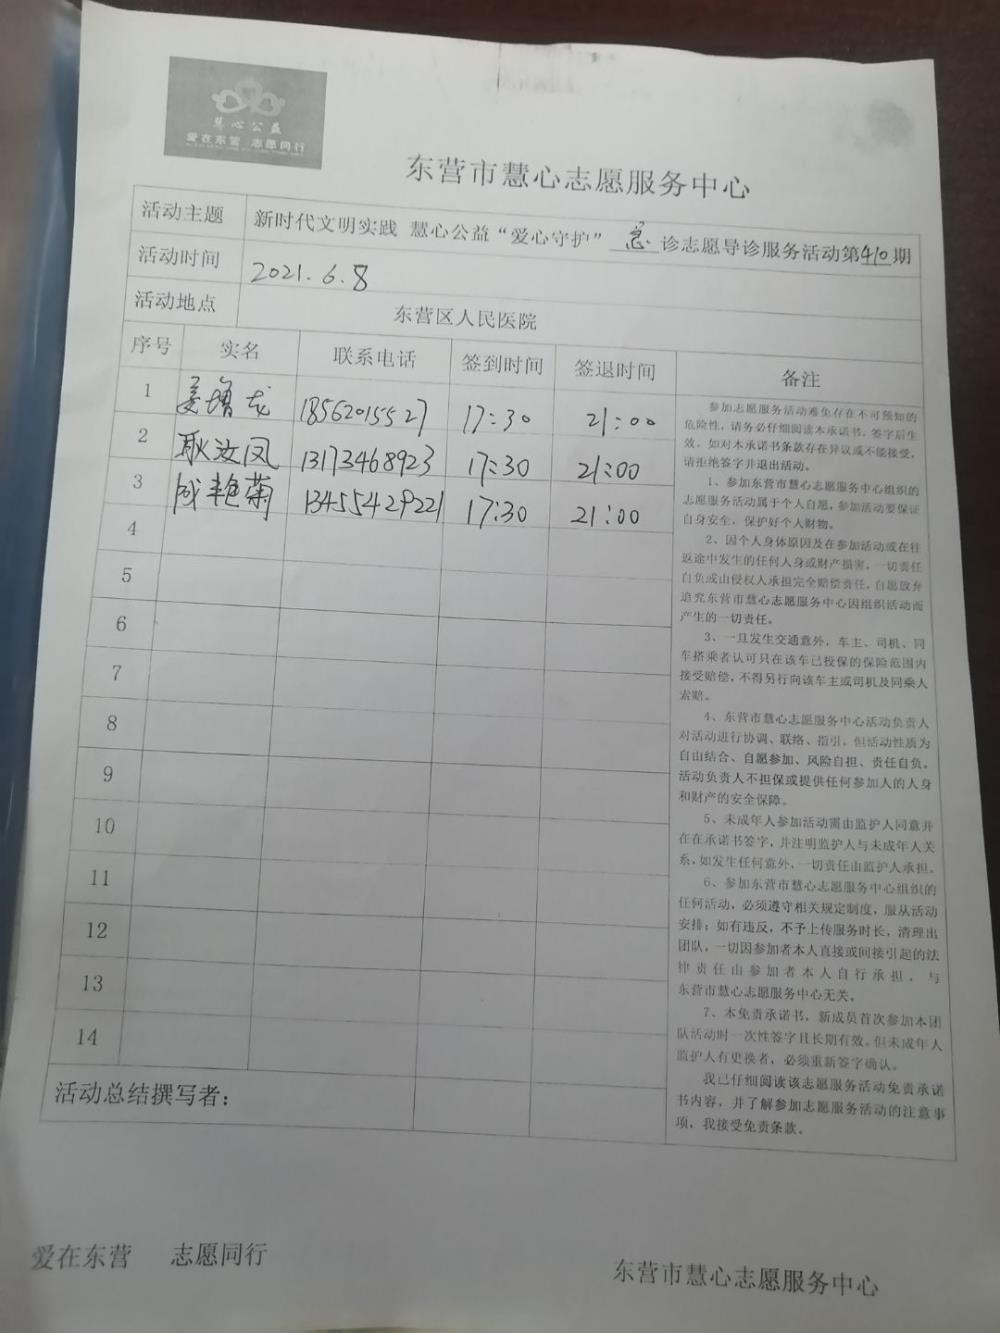 慧心公益
爱在东营 志愿同行
东营市慧心志愿服务中心
活动主题 新时代文明实践 慧心公益“爱心守护” 急 诊志愿导诊服务活动第410期
活动时间 2021.6.8
活动地点 东营区人民医院
序号 实名 联系电话 签到时间 签退时间 备注
1 姜增龙 18562015527 17:30 21:00
2 耿汝凤 13173468923 17:30 21:00
3 成艳菊 13455429221 17:30 21:00
4
5
6
7
8
9
10
11
12
13
14
参加志愿服务活动难免存在不可预知的
危险性，请务必仔细阅读本承诺书，签字后生
效。如对本承诺书条款存在异议或不能接受，
请拒绝签字并退出活动。
1、参加东营市慧心志愿服务中心组织的
志愿服务活动属于个人自愿，参加活动要保证
自身安全，保护好个人财物。
2、因个人身体原因及在参加活动或在往
返途中发生的任何人身或财产损害，一切责任
自负或由侵权人承担完全赔偿责任，自愿放弃
追究东营市慧心志愿服务中心因组织活动而
产生的一切责任。
3、一旦发生交通意外，车主、司机、同
车搭乘者认可只在该车已投保的保险范围内
接受赔偿，不得另行向该车主或司机及同乘人
索赔。
4、东营市慧心志愿服务中心活动负责人
对活动进行协调、联络、指引，但活动性质为
自由结合、自愿参加、风险自担、责任自负。
活动负责人不担保或提供任何参加人的人身
和财产的安全保障。
5、未成年人参加活动需由监护人同意并
在在承诺书签字，并注明监护人与未成年人关
系，如发生任何意外，一切责任由监护人承担。
6、参加东营市慧心志愿服务中心组织的
任何活动，必须遵守相关规定制度，服从活动
安排；如有违反，不予上传服务时长，清理出
团队，一切因参加者本人直接或间接引起的法
律责任由参加者本人自行承担，与
东营市慧心志愿服务中心无关。
7、本免责承诺书，新成员首次参加本团
队活动时一次性签字且长期有效。但未成年人
监护人有更换者，必须重新签字确认。
我已仔细阅读该志愿服务活动免责承诺
书内容，并了解参加志愿服务活动的注意事
项，我接受免责条款。
活动总结撰写者：
爱在东营 志愿同行
东营市慧心志愿服务中心